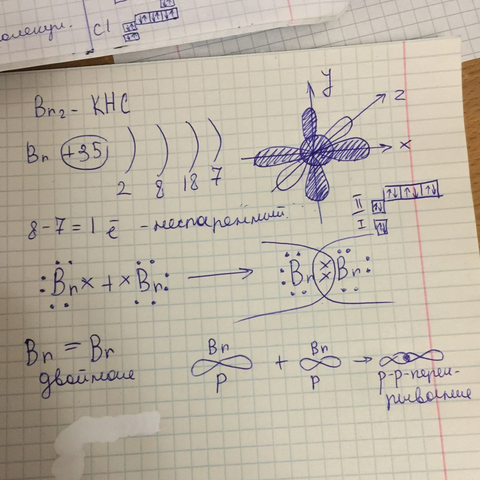 Cl
Br₂ - КНС
y
z
x
Br +35 ) ) ) )
2 8 18 7
8-7=1 ē - неспаренный.
II
I
:Br× + ×Br: → :Br ×× Br:
Br = Br
двойное
Br + Br →
p p p-p-перек-
рывание